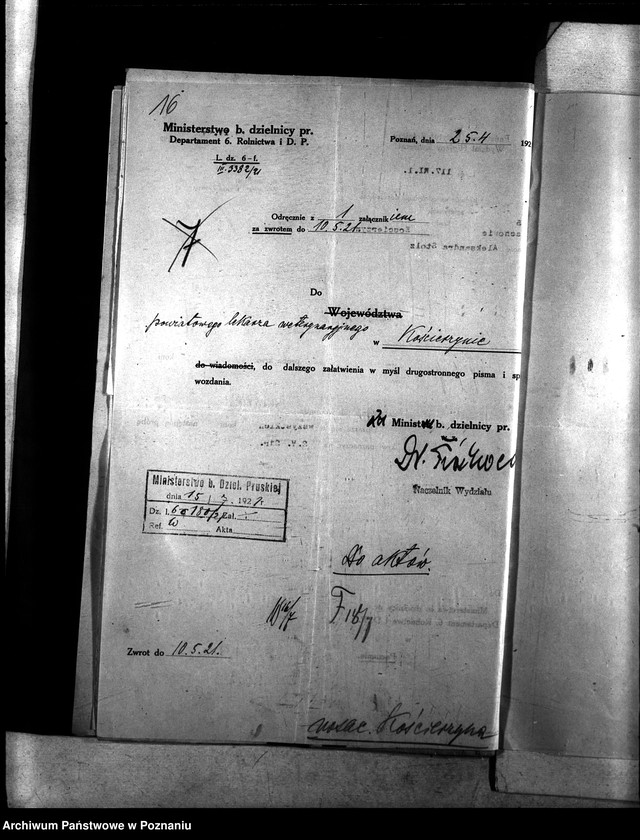 16
Ministerstwo b. dzielnicy pr.
Departament 6. Rolnictwa i D. P.
Poznań, dnia 25.4 192
L. dz. 6-f.
IV. 3382/21
Odręcznie z 1 załącznikiem
za zwrotem do 10.5.21.
Do
Województwa
powiatowego lekarza weterynaryjnego
w Kościerzynie
do wiadomości, do dalszego załatwienia w myśl drugostronnego pisma i sp
wozdania.
Za Ministra b. dzielnicy pr.
Dr.
Naczelnik Wydziału
Ministerstwo b. Dzieł. Pruskiej
dnia 15 / 7 1921
Dz. l. Zal.
Ref. Akta
Do aktów.
F 18/7
Zwrot do 10.5.21.
Kościerzyna
Archiwum Państwowe w Poznaniu